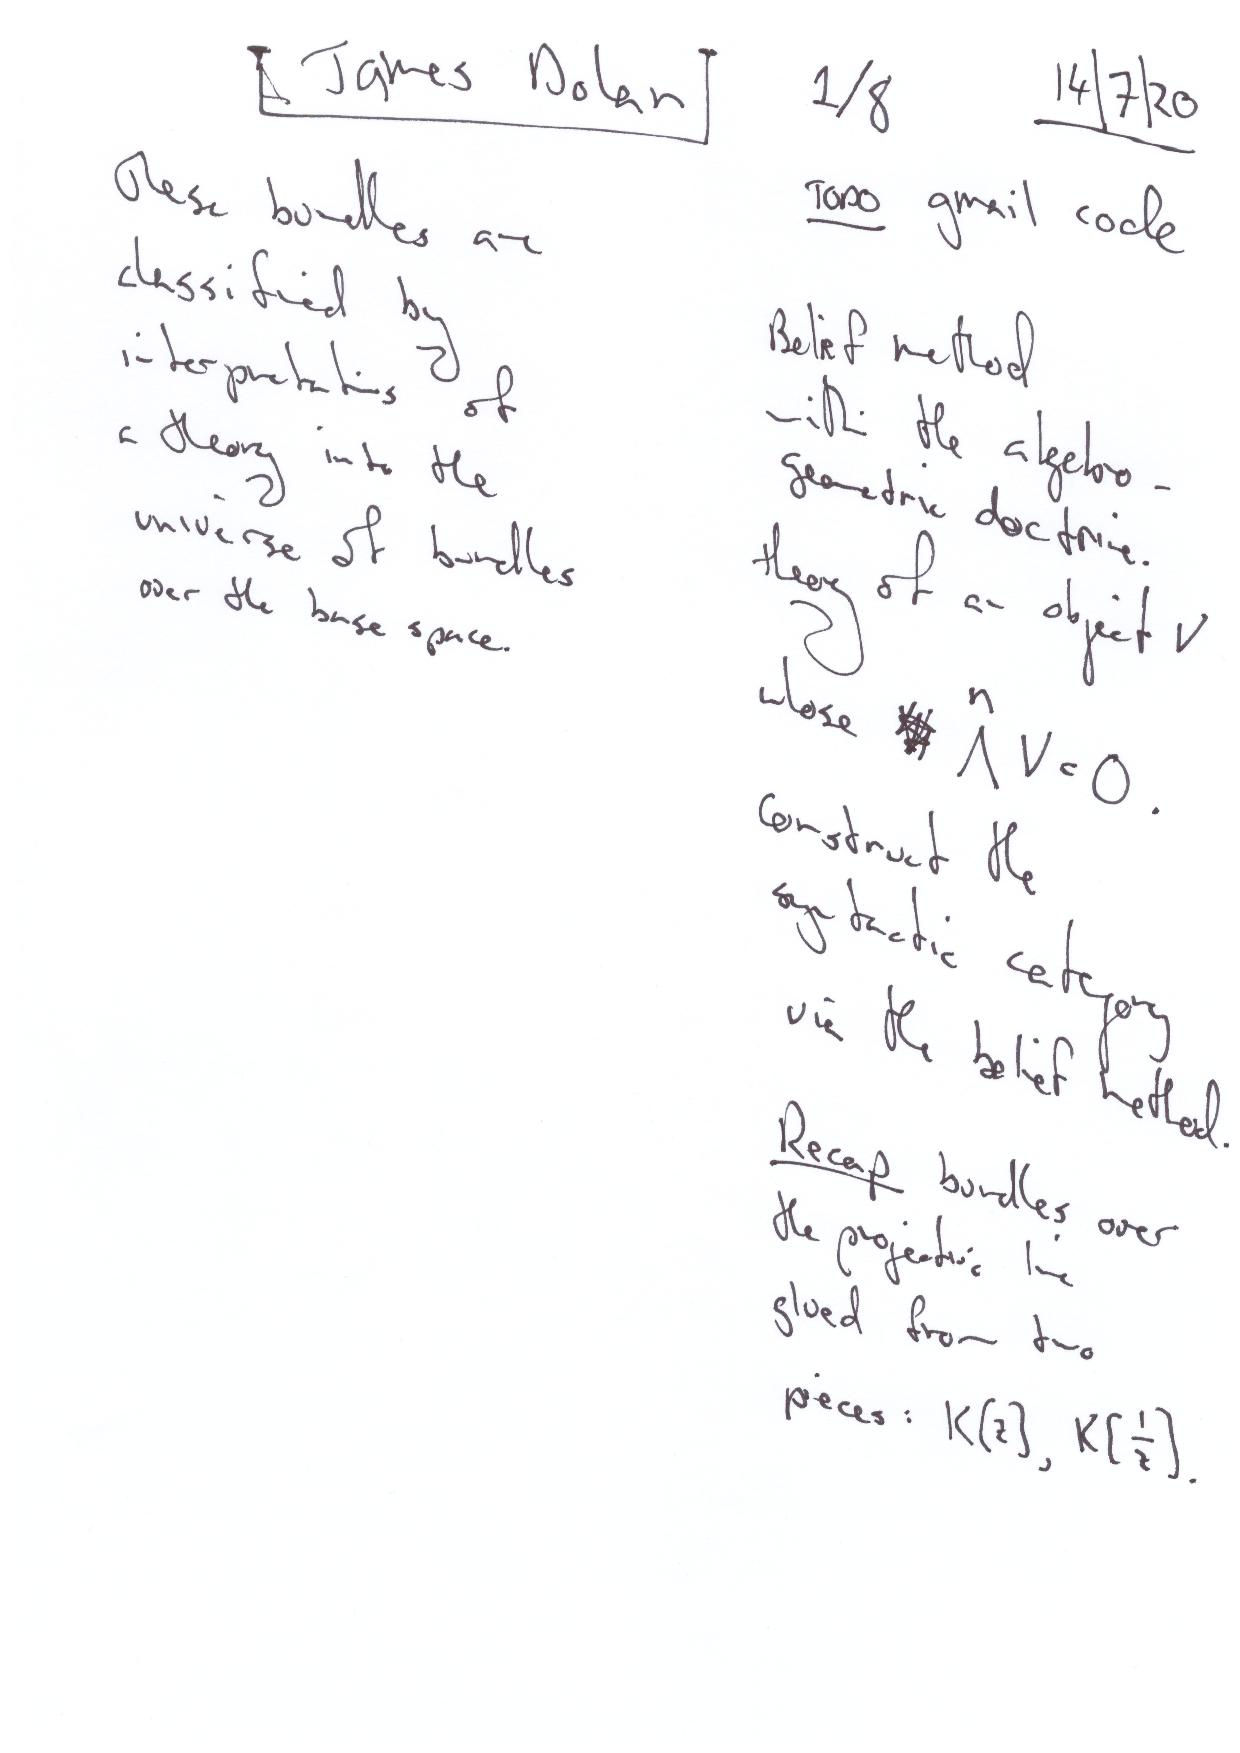 James Dolan 1/8 14/7/20
These bundles are
classified by
interpretations of
a theory into the
universe of bundles
over the base space.
TODO gmail code
Belief method
with the algebro-
geometric doctrine.
theory of an object V
whose n
Λ V = 0.
Construct the
syntactic category
via the belief method.
Recap bundles over
the projective line
glued from two
pieces: K[z], K[1/z].